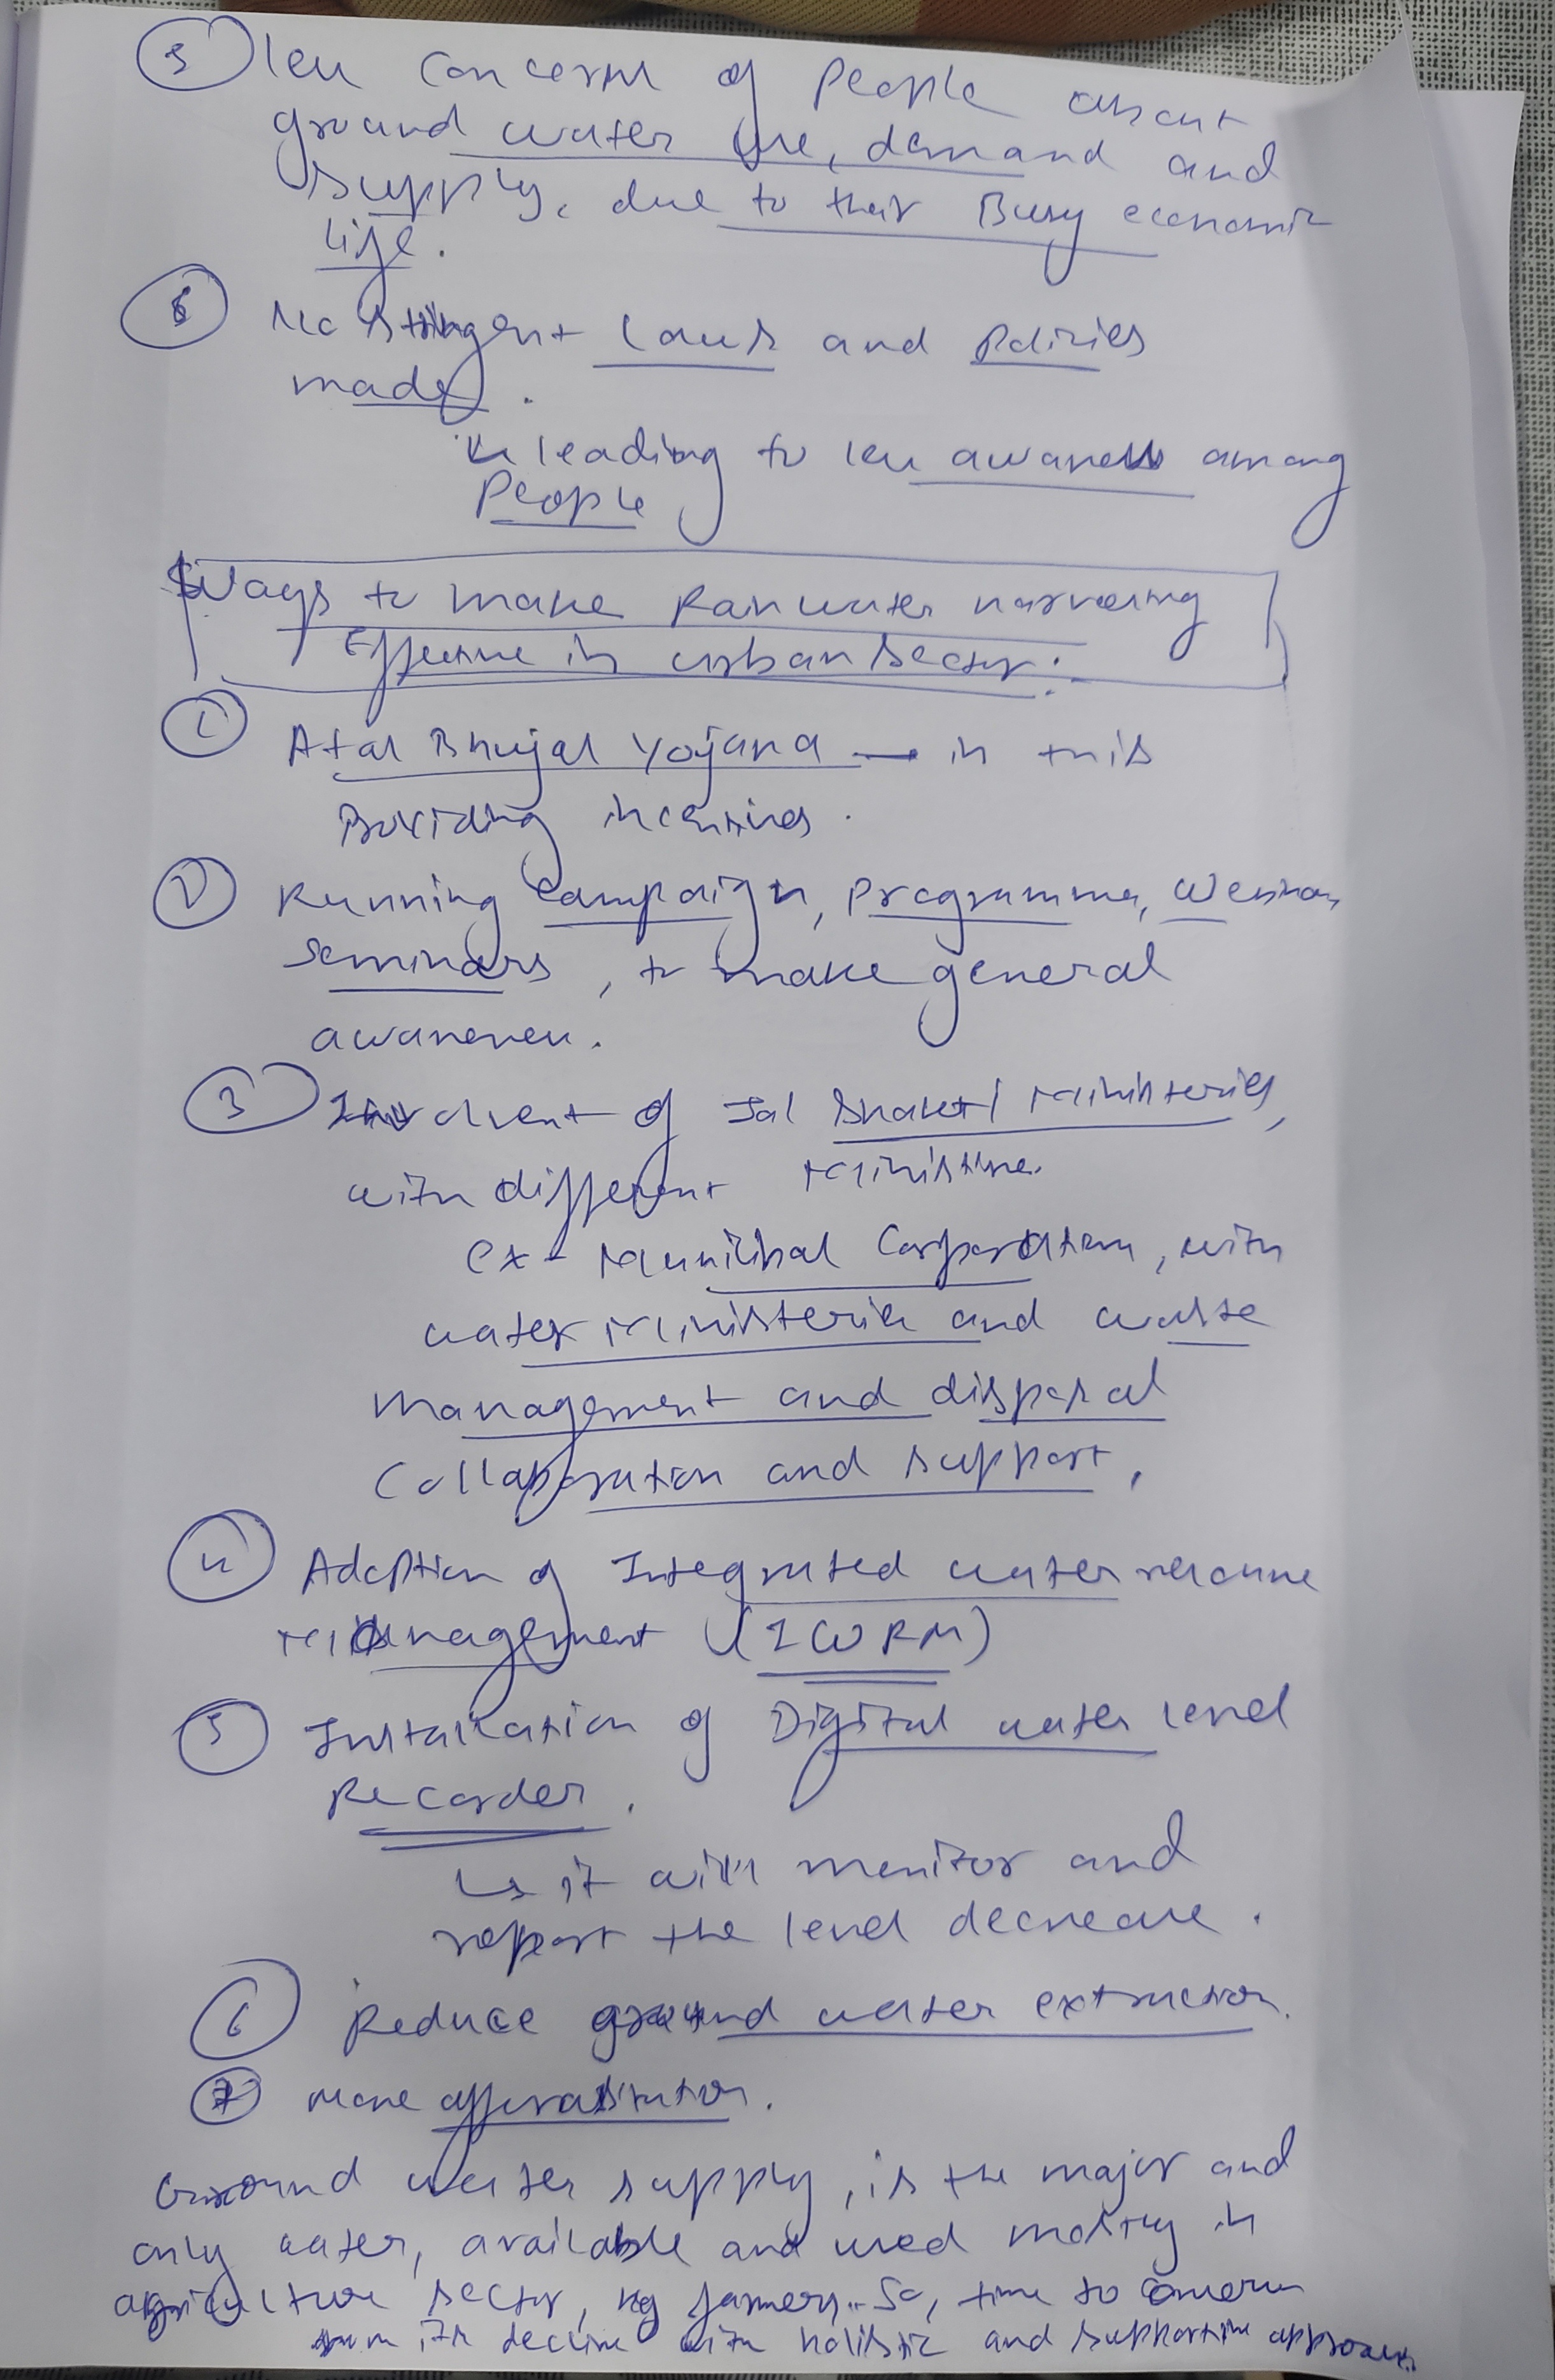 5 less concern of People about
ground water use, demand and
supply, due to their Busy economic
life.
6 No stringent laws and policies
made.
↳ leading to less awareness among
People
Ways to make Rainwater harvesting
Effective in urban sector:
1 Atal Bhujal Yojana → in this
Providing incentives.
2 Running campaign, programmes,
seminars, to make general
awareness.
3 Involvent of Jal Shakti Ministeries,
with different Ministries.
ex- Municipal Corporation, with
water Ministeries and waste
management and disposal
Collaboration and support,
4 Adoption of Integrated water resource
Management (IWRM)
5 Installation of Digital water level
Recorder.
↳ it will monitor and
report the level decrease.
6 Reduce ground water extraction.
7 More
Ground water supply, is the major and
only water, available and used mostly in
agriculture sector, by farmers. So, time to
its decline with holistic and supportive approach.